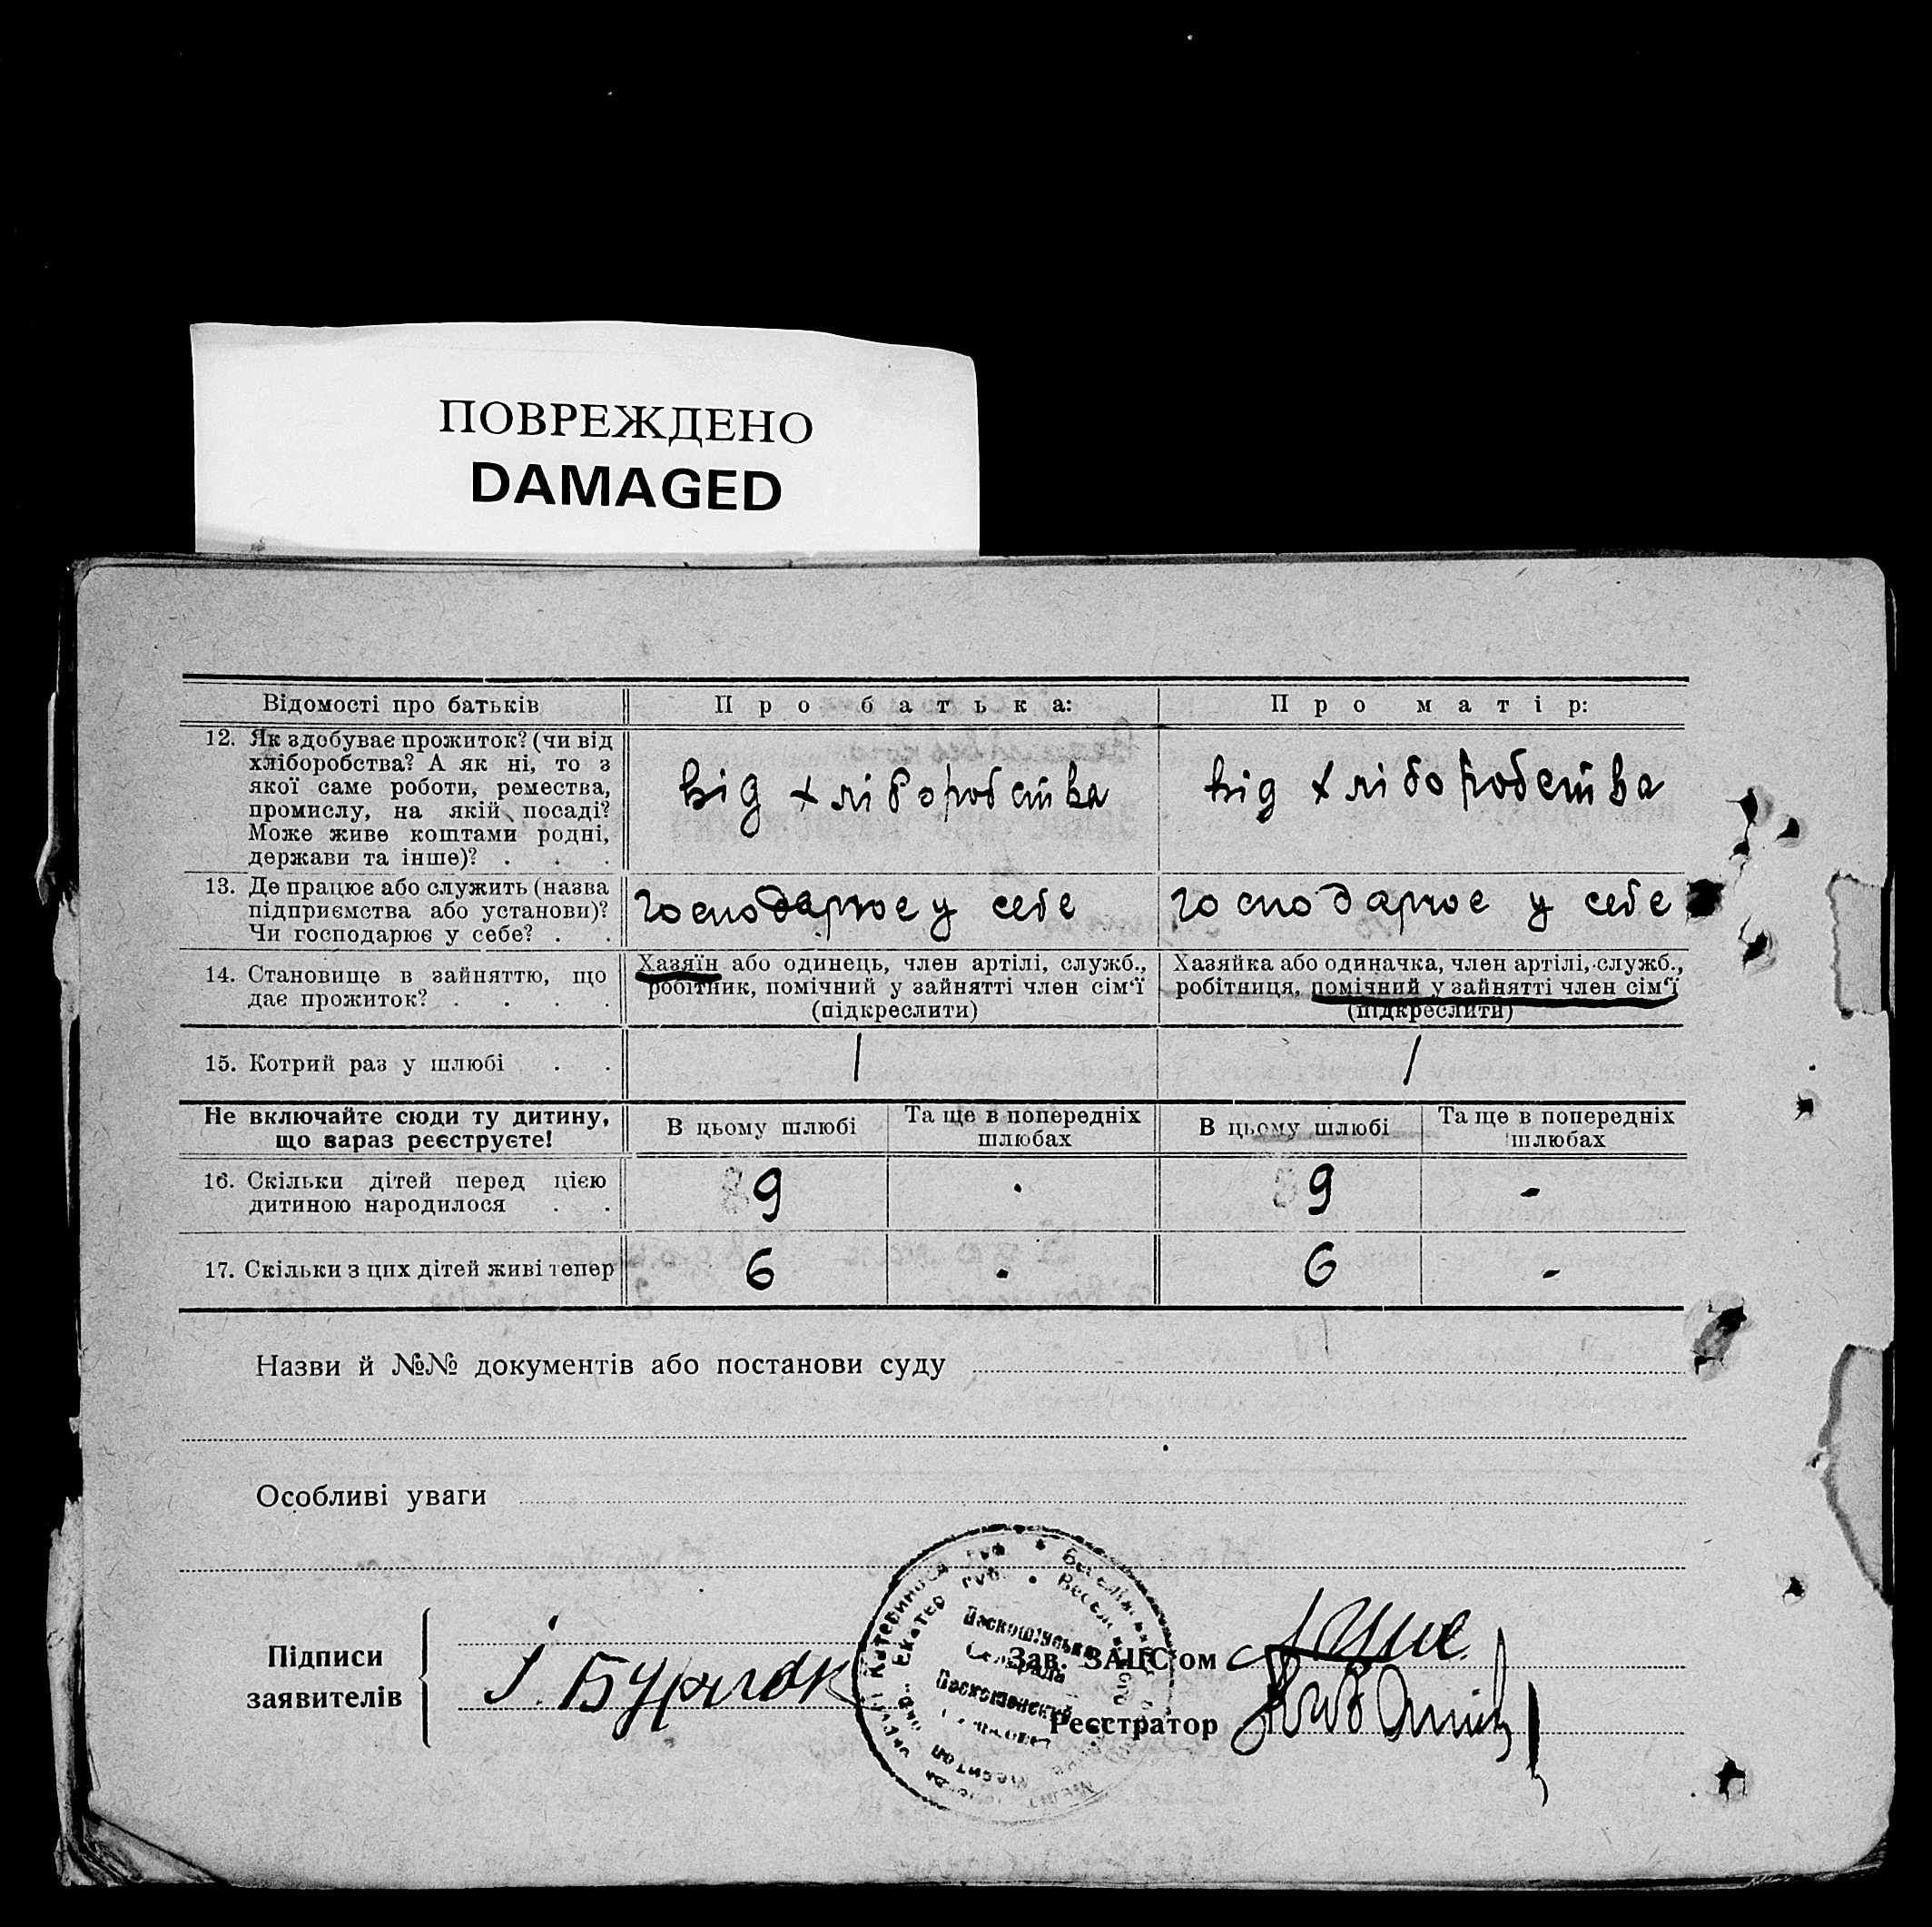 ПОВРЕЖДЕНО
DAMAGED
Відомості про батьків
Про батька:
Про матір:
12. Як здобуває прожиток? (чи від
хліборобства? А як ні, то з
якої саме роботи, ремества,
промислу, на якій посаді?
Може живе коштами родні,
держави та інше)? . . .
від хліборобства
від хліборобства
13. Де працює або служить (назва
підприємства або установи)?
Чи господарює у себе? . .
господарює у себе
господарює у себе
14. Становище в зайняттю, що
дає прожиток? . . . .
Хазяїн або одинець, член артілі, служб.,
робітник, помічний у зайнятті член сім'ї
(підкреслити)
Хазяйка або одиначка, член артілі, служб.,
робітниця, помічний у зайнятті член сім'ї
(підкреслити)
15. Котрий раз у шлюбі . .
1
1
Не включайте сюди ту дитину,
що зараз реєструєте!
В цьому шлюбі
Та ще в попередніх
шлюбах
В цьому шлюбі
Та ще в попередніх
шлюбах
16. Скільки дітей перед цією
дитиною народилося . .
9
9
-
17. Скільки з цих дітей живі тепер
6
-
6
-
Назви й №№ документів або постанови суду
Особливі уваги
Підписи
заявителів
І.
Зав. ЗАЦС'ом
Реєстратор